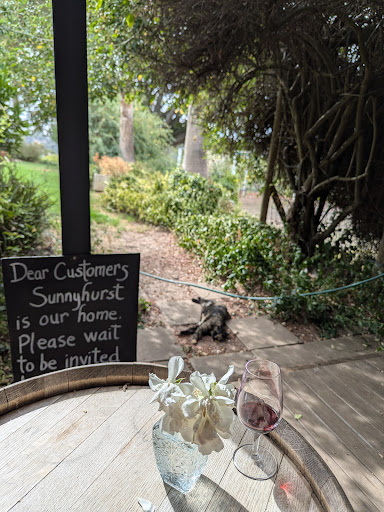 Dear Customers
Sunnyhurst
is our home.
Please wait
to be invited